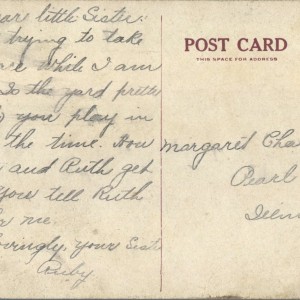 ear little Sister:
trying to take
ce while I am
Is the yard pretty
you play in
the time. How
and Ruth get
You tell Ruth
me.
ovingly, your Sist
Ruby
POST CARD
THIS SPACE FOR ADDRESS
Margaret Cha
Pearl